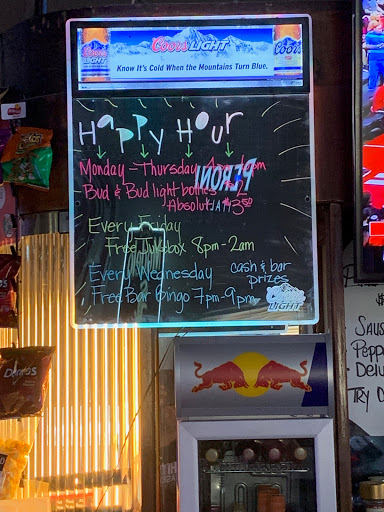 Coors LIGHT
Coors
Know It's Cold When the Mountains Turn Blue.
Happy Hour
Monday - Thursday
PERONI
Bud & Bud light bottles
Absolut $3.50
Every Friday
Free Jukebox 8pm - 2am
Every Wednesday
cash & bar
prizes
Free Bar Bingo 7pm - 9pm
Coors
LIGHT
Doritos
Red Bull
SAUS
PEPP
DELU
TRY O